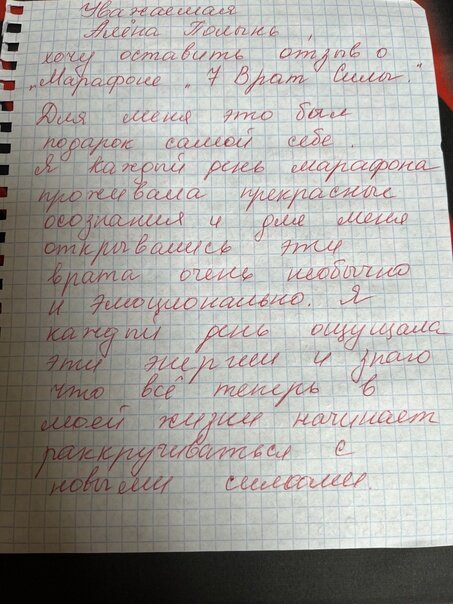 Уважаемая
Алёна Полынь
хочу оставить отзыв о
„Марафоне „ 7 Врат Силы."
Для меня это был
подарок самой себе.
Я каждый день марафона
проживала прекрасные
осознания и для меня
открывались эти
врата очень необычно
и эмоционально. Я
каждый день ощущала
эти энергии и знаю
что всё теперь в
моей жизни начинает
раккручиваться с
новыми силами.